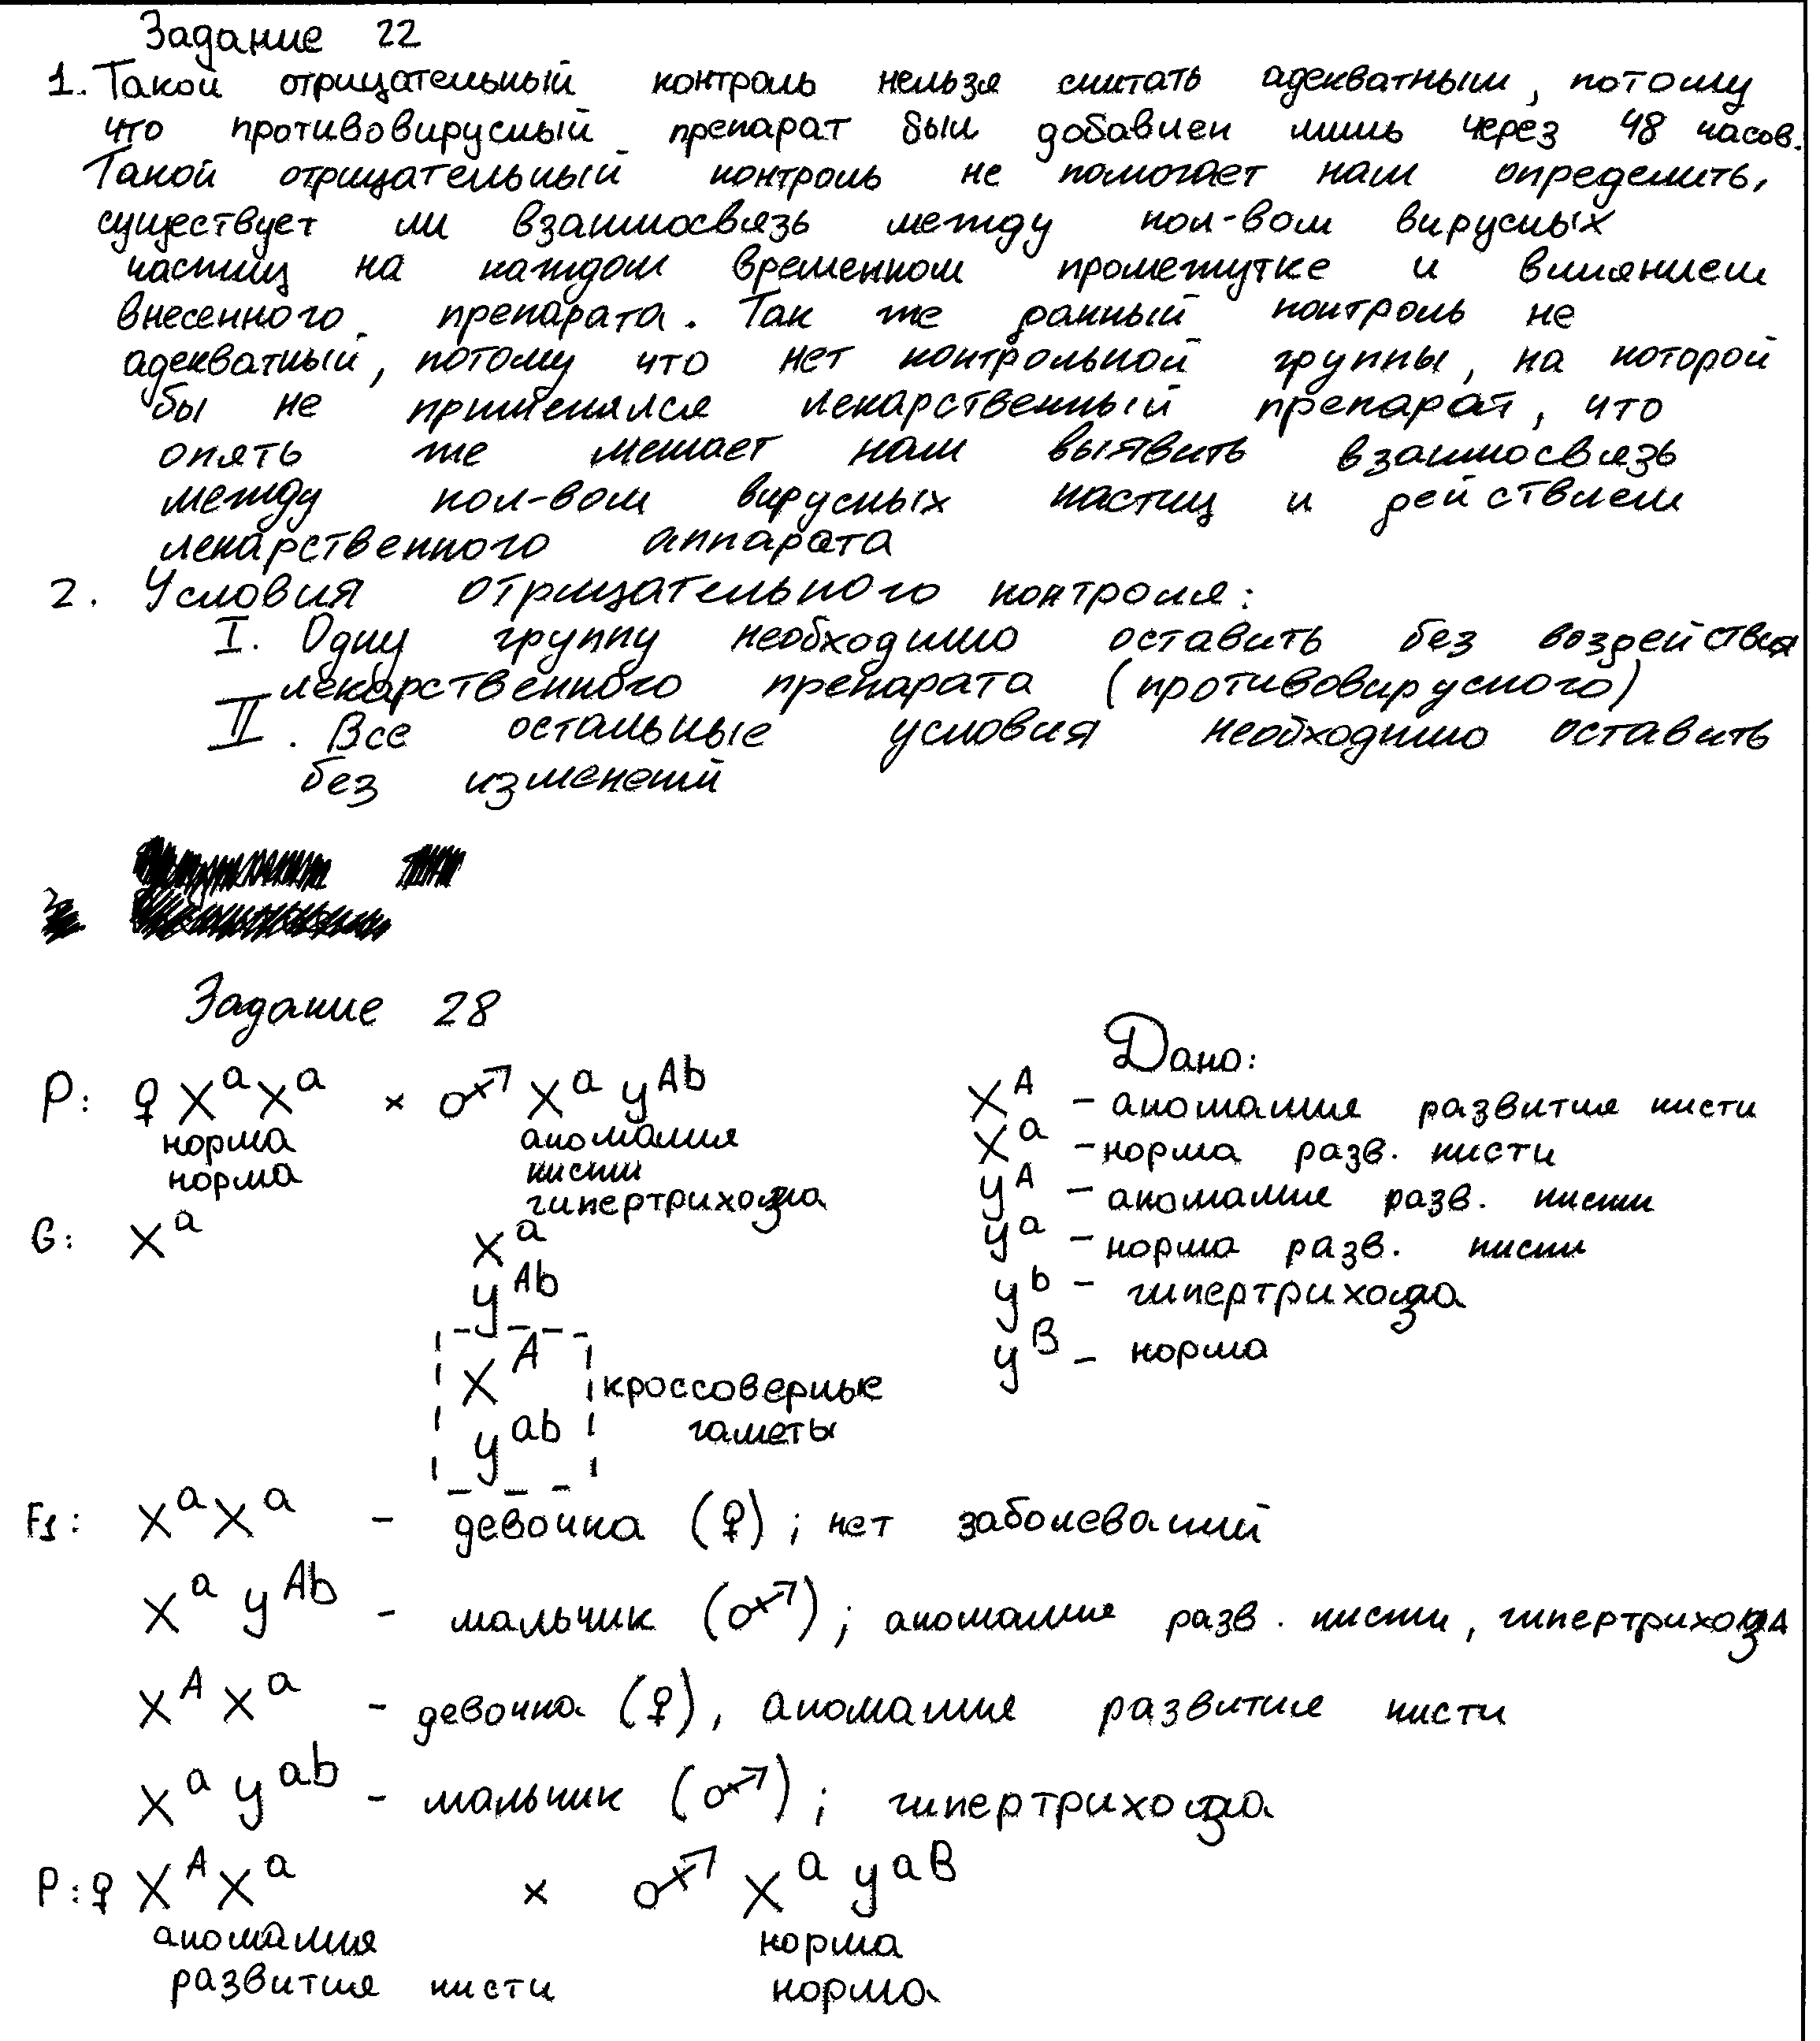 Задание 22
1. Такой отрицательный контроль нельзя считать адекватным, потому
что противовирусный препарат был добавлен лишь через 48 часов.
Такой отрицательный контроль не помогает нам определить,
существует ли взаимосвязь между кол-вом вирусных
частиц на каждом временном промежутке и влиянием
внесенного препарата. Так же данный контроль не
адекватный, потому что нет контрольной группы, на которой
бы не применялся лекарственный препарат, что
опять же мешает нам выявить взаимосвязь
между кол-вом вирусных частиц и действием
лекарственного аппарата
2. Условия отрицательного контроля:
I. Одну группу необходимо оставить без воздействия
лекарственного препарата (противовирусного)
II. Все остальные условия необходимо оставить
без изменений
Задание 28
Дано:
P: ♀ XᵃXᵃ × ♂ Xᵃ yᴬᵇ
норма аномалия
норма кисти
гипертрихоза
Xᴬ - аномалия развития кисти
Xᵃ - норма разв. кисти
yᴬ - аномалия разв. кисти
yᵃ - норма разв. кисти
yᵇ - гипертрихоза
yᴮ - норма
G: Xᵃ Xᵃ
yᴬᵇ
Xᴬ кроссоверные
yᵃᵇ гаметы
F1: XᵃXᵃ - девочка (♀); нет заболеваний
Xᵃ yᴬᵇ - мальчик (♂); аномалия разв. кисти, гипертрихоза
XᴬXᵃ - девочка (♀), аномалия развития кисти
Xᵃ yᵃᵇ - мальчик (♂); гипертрихоза
P: ♀ XᴬXᵃ × ♂ Xᵃ yᵃᴮ
аномалия норма
развития кисти норма